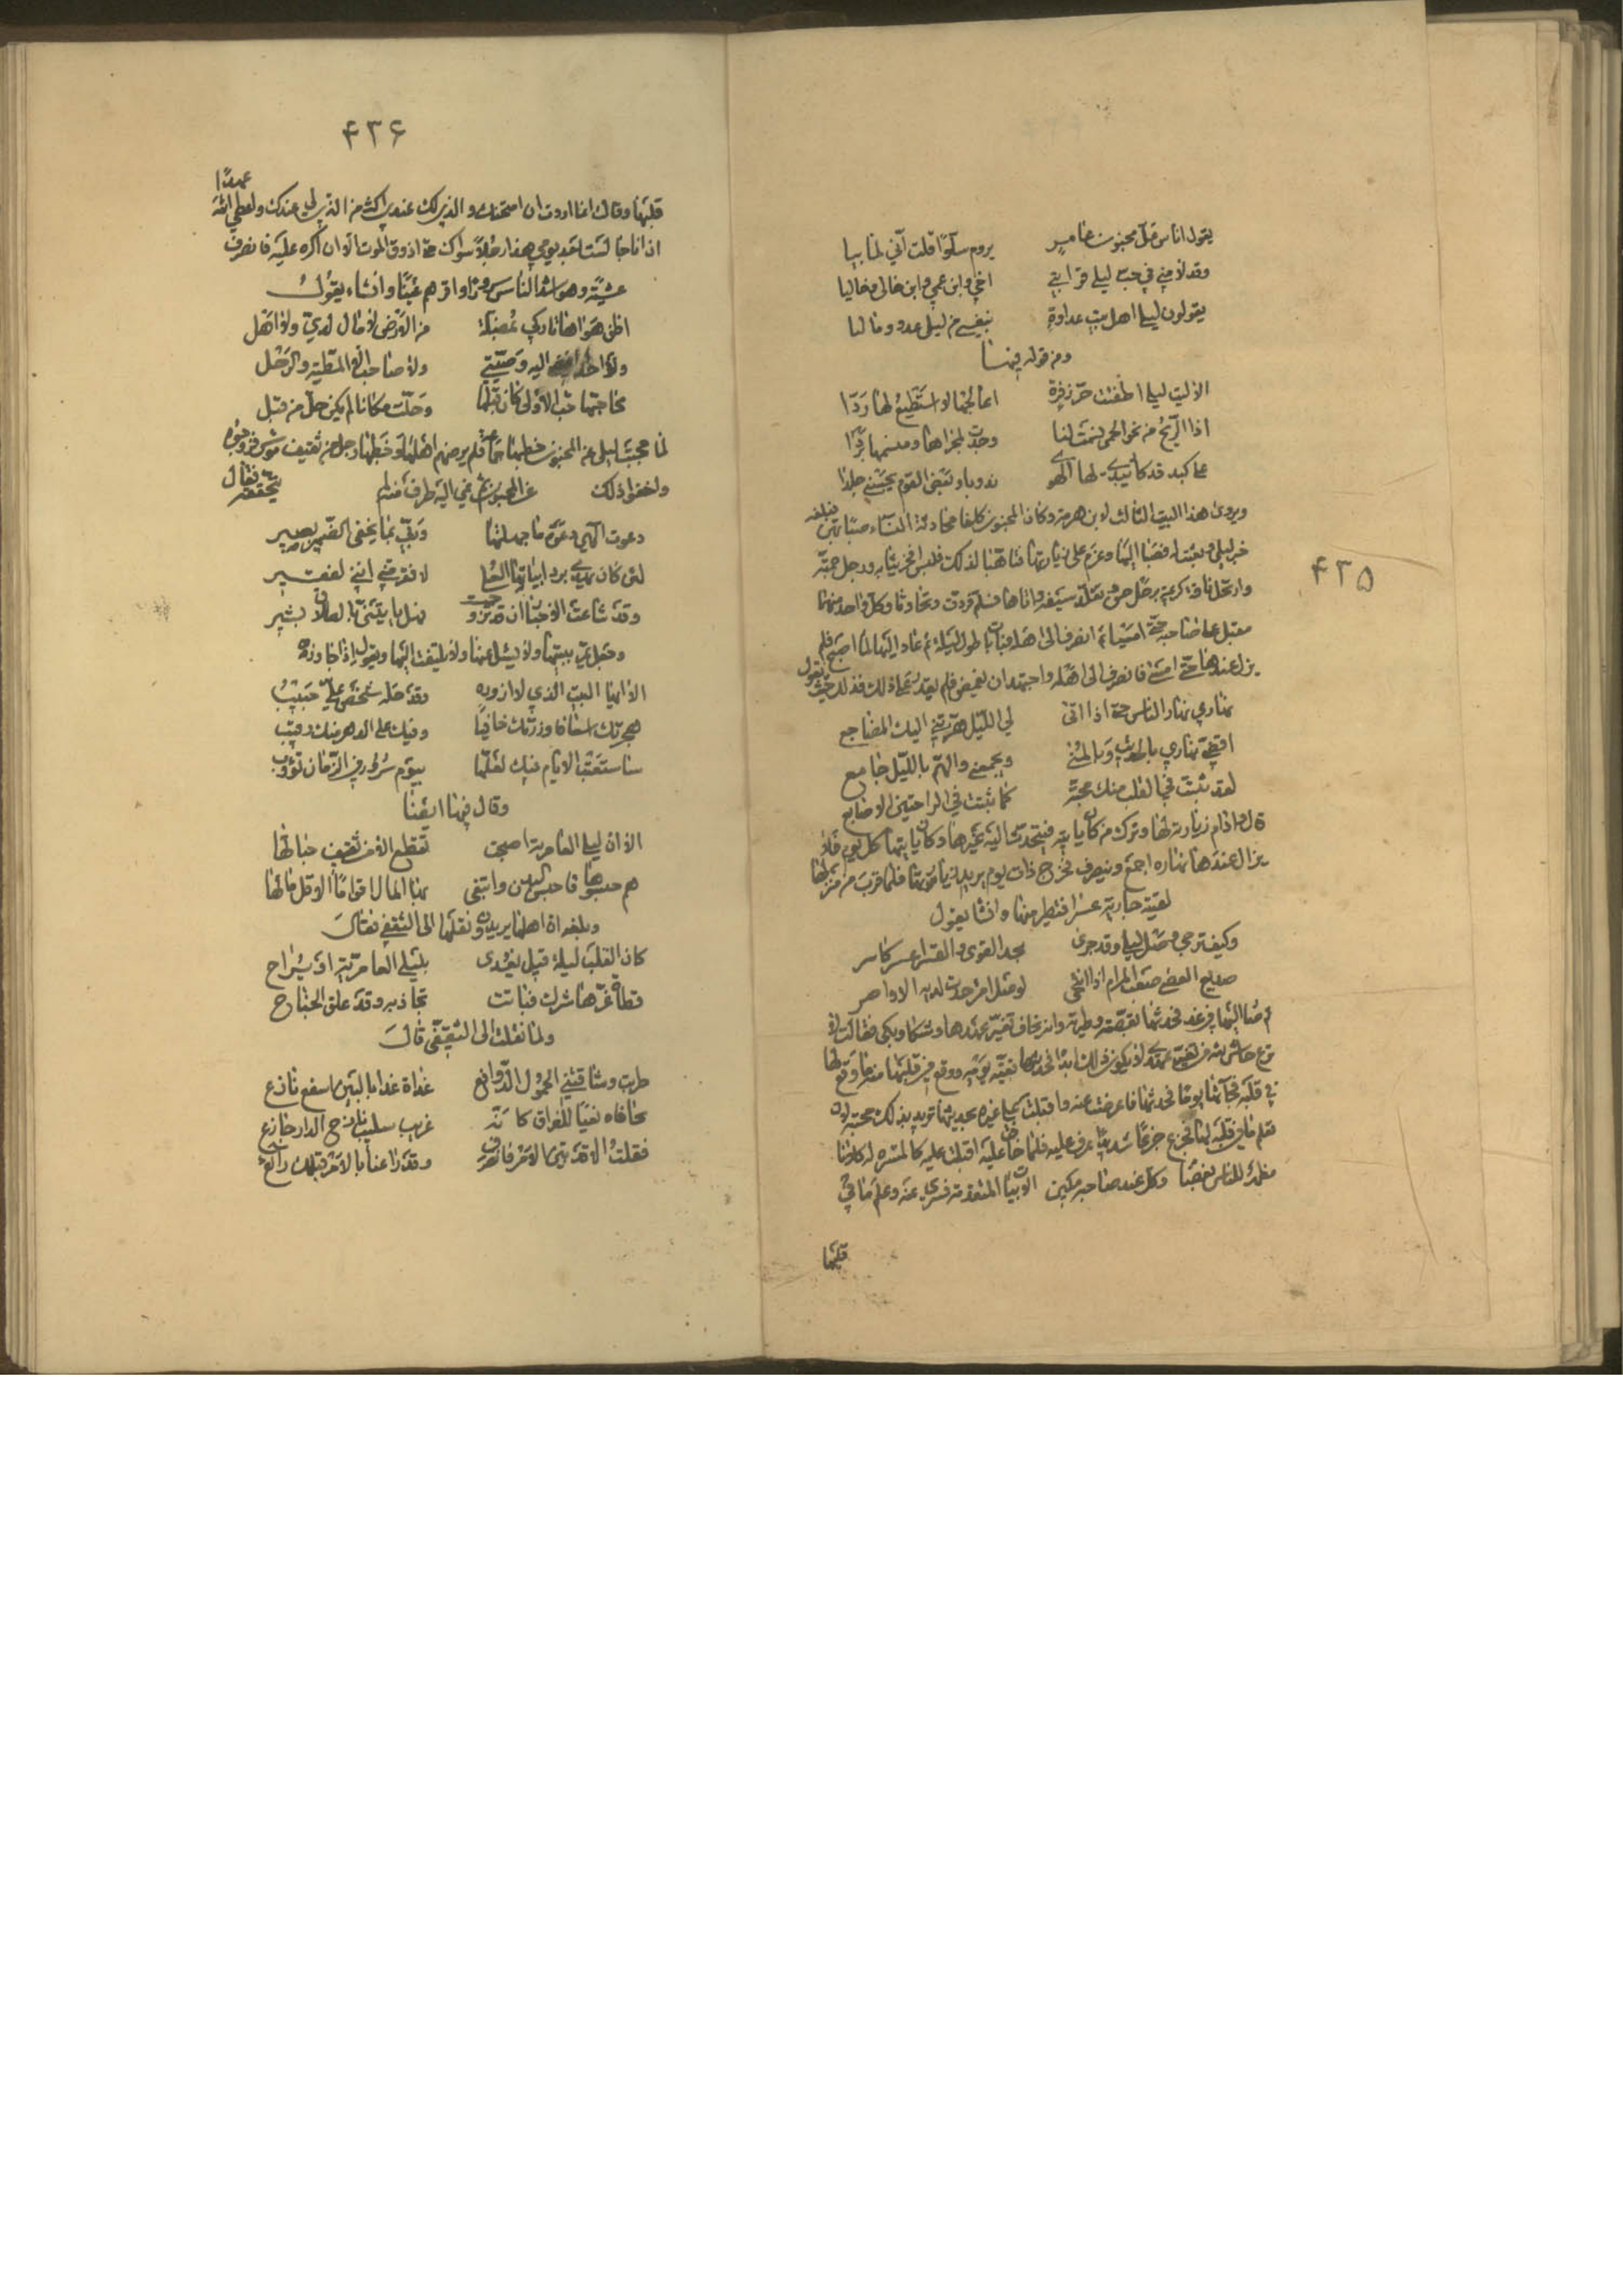 ۴۳۵
يقول اناس علّ مجنون عامر يروم سلوّا قلت أني لما بيا
وقد لامني في حب ليلى قرابتي اخي وابن عمي وابن خالي وخاليا
يقولون ليلى اهل بيت عداوة بنفسي من ليلى عدو وماليا
ومن قوله فيها
الا ليت ليلى اطفئت حرّ زفرة اعالجها لا استطيع لها ردّا
اذا الريح من نحو الحمى نسمت لنا وجدت لمجراها ومنسمها بردا
على كبد قد كاد يبدي لها الهوى ندوبا وبعض القوم يحسبني جلدا
ويروى هذا البيت الثالث لابن هرمة وكان المجنون كلفا بمحادثة النساء صبا بهن فبلغه
خبر ليلى ونعتت له فصبا اليها وعزم على زيارتها فتاهب لذلك فلبس افخر ثيابه ورجل جمته
وارتحل ناقة كريمة برحل حسن وتقلد سيفه واتاها فسلم فردت وتحادثا وكل واحد منهما
مقبل على صاحبه حتى امسيا ثم انصرف الى اهله فبات باطول ليلة ثم عاد اليها لما اصبح فلم
يزل عندها حتى امسى فانصرف الى اهله واجتهد ان يغمض فلم يقدر على ذلك فذلك حيث يقول
نهاري نهار الناس حتى اذا اتى لي الليل هزتني اليك المضاجع
اقضي نهاري بالحديث وبالمنى ويجمعني والهم بالليل جامع
لقد ثبتت في القلب منك محبة كما ثبتت في الراحتين الاصابع
قال وادام زيارته لها وترك من كان ياتيه فيتحدث اليه غيرها وكان ياتيها كل يوم فلا
يزال عندها نهاره اجمع وينصرف فخرج ذات يوم يريد زيارتها فلما قرب من منزلها
لقيته جارية عسرا فتطير منها وانشا يقول
وكيف ترجي وصل ليلى وقد جرى بجد القوى والقسر اعسر كاسر
صديع العصى صعب المرام اذا انتحى لوصل امرء جدت لديه الاواصر
ثم صار اليها في غد فحدثها بقصته وطيرته وانه يخاف تغير عهدها وشكا وبكى فقالت لا
في قلبه فجاءها يوما فحدثها فاعرضت عنه واقبلت على غيره بحديثها تريد بذلك محبته لان
تعلم ما في قلبه لها فجزع جزعا شديدا عرف عليه فلما خاف عليه اقبلت عليه كالمشيرة له
كلانا مظهر للناس بغضا وكل عند صاحبه مكين الابيات المتقدمة فسرى عنه وعلم ما في
قلبها
۴۳۶
قلبها وقالت انما اردت ان امتحنك والذي لك عندي اكثر من الذي لي عندك واعطي الله عهدا
اذ انا جالست بعد يومي هذا رجلا سواك حتى اذوق الموت الا ان اكره عليه فانصرف
عشية وهو اسر الناس واقرهم عينا وانشاء يقول
اظن هواها تاركي بمضلة من الارض لا مال لدي ولا اهل
ولا احد افضي اليه وصيتي ولا صاحب الا المطية والرحل
محا حبها حب الاولى كان قبلها وحلت مكانا لم يكن حل من قبل
لما حجبت ليلى عن المجنون خطبها جماعة فلم يرضهم اهلها وخطبها رجل من ثقيف موسر فزوجوه
واخفوا ذلك عن المجنون ثم نمي اليه طرف منه لم يتحققه فقال
دعوت الهي دعوة ما جهلتها وربي بما يخفي الضمير بصير
لئن كان يهدي برد انيابها العلى لافقر مني انني لفقير
وقد شاعت الاخبار ان قد تزوجت فهل ياتيني بالطلاق بشير
وجعل يمر ببيتها ولا يسئل عنها ولا يلتفت اليها ويقول اذا جاوزه
الا ايها البيت الذي لا ازوره وقد حله شخص علي حبيب
هجرتك اشفاقا وزرتك خائفا وفيك علي الدهر منك رقيب
ساستعتب الايام فيك لعلها بيوم سرور في الزمان تؤوب
وقال فيها ايضا
الا ان ليلى العامرية اصبحت تقطع الا من ثقيف حبالها
هم حبسوها محبس البدن وابتغى بها المال اقواما الا قل مالها
وبلغه ان اهلها يريدون نقلها الى الثقفي فقال
كان القلب ليلة قيل يغدى بليلى العامرية او يراح
قطاة غرها شرك فباتت تجاذبه وقد علق الجناح
ولما نقلت الى الثقيفي قال
طربت وشاقتني الحمول الدوافع غداة غدا بالبين اسفع نازع
شحا فاه نعيا للفراق كانه غريب سليب نازح الدار جازع
فقلت الا قد بين الامر فانصرف وقد راعنا بالامر قبلك رائع